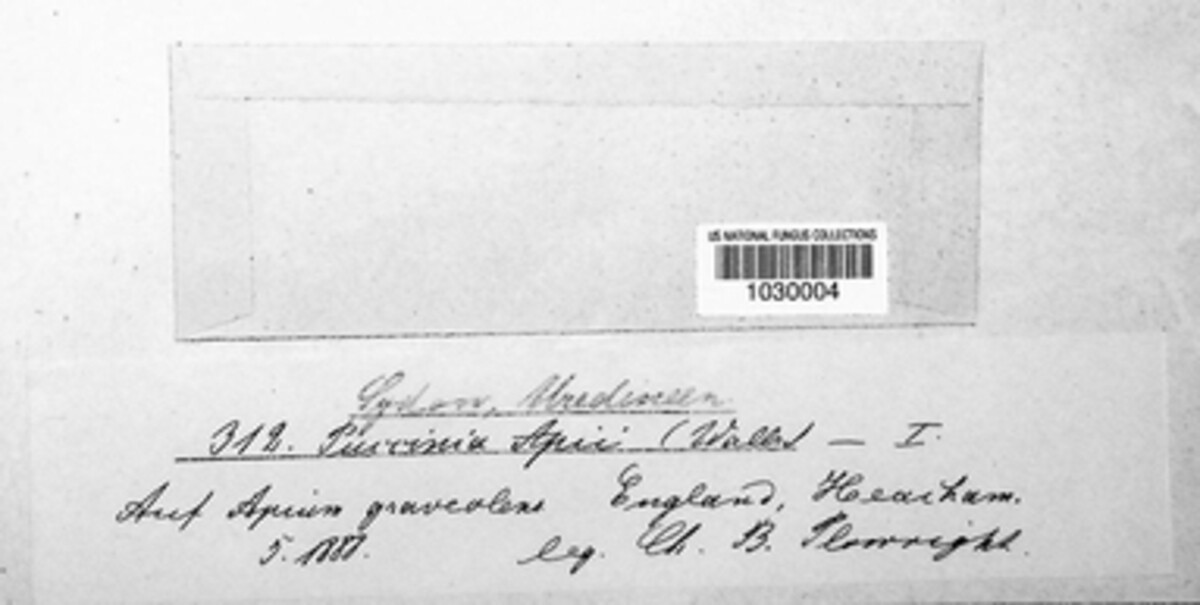 US NATIONAL FUNGUS COLLECTIONS
1030004
Sydow, Uredineen
312. Puccinia Apii (Wallr) — I.
Auf Apium graveolens England, Heacham.
5. 1888. leg. Ch. B. Plowright.